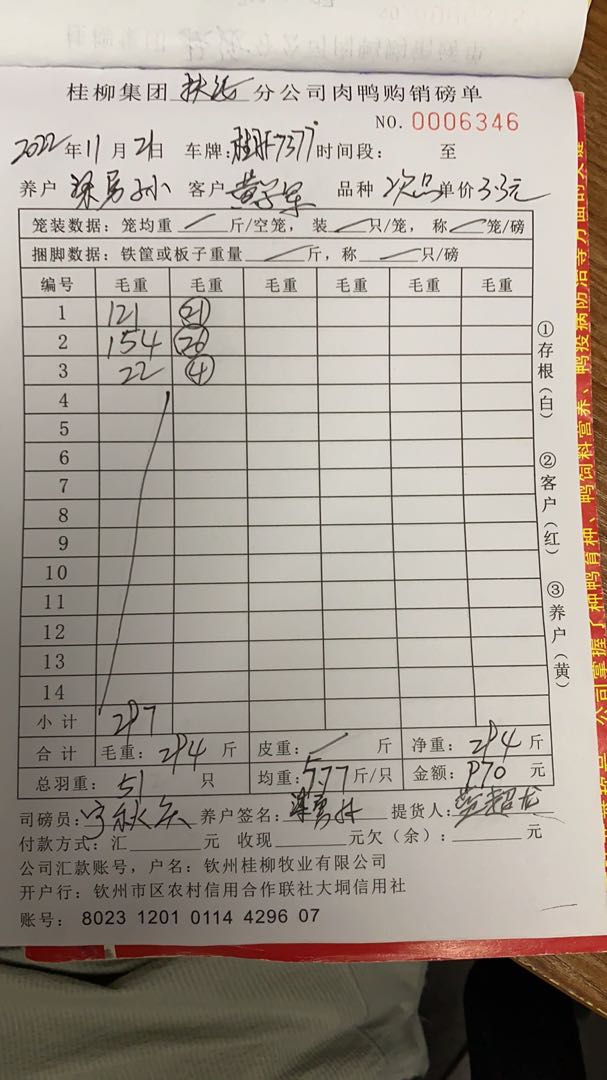 桂柳集团 分公司肉鸭购销磅单
NO. 0006346
2022年11月21日 车牌：桂 7377 时间段： 至
养户 客户 品种 次品 单价 3.3元
笼装数据：笼均重 / 斤/空笼，装 / 只/笼，称 / 笼/磅
捆脚数据：铁筐或板子重量 / 斤，称 / 只/磅
编号 毛重 毛重 毛重 毛重 毛重 毛重
1 121 21
2 154 26
3 22 4
4
5
6
7
8
9
10
11
12
13
14
小计 297
合计 毛重：294 斤 皮重：/ 斤 净重：294 斤
总羽重：51 只 均重：5.77 斤/只 金额：970 元
司磅员： 养户签名： 提货人：
付款方式：汇 元 收现 元欠（余）： 元
公司汇款账号，户名：钦州桂柳牧业有限公司
开户行：钦州市区农村信用合作联社大垌信用社
账号：8023 1201 0114 4296 07
①存根（白）
②客户（红）
③养户（黄）
公司掌握了种鸭育种、鸭饲料营养、鸭疫病防治等方面的